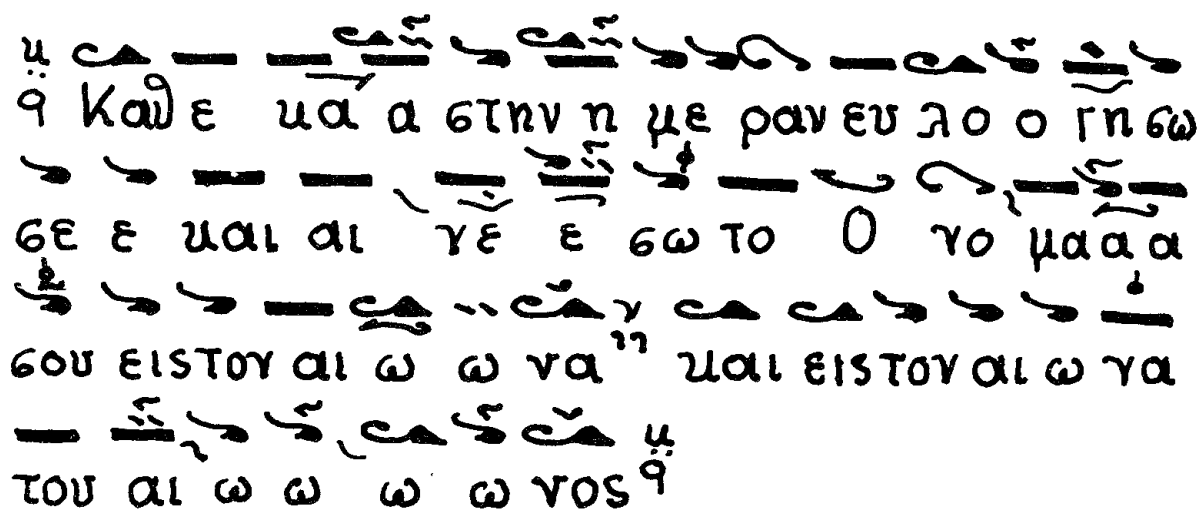 Καθ ε κα α στην η με ραν ευ λο ο γη σω
σε ε και αι γε ε σω το Ο νο μα α α
σου εις τον αι ω ω να και εις τον αι ω να
του αι ω ω ω ω νος